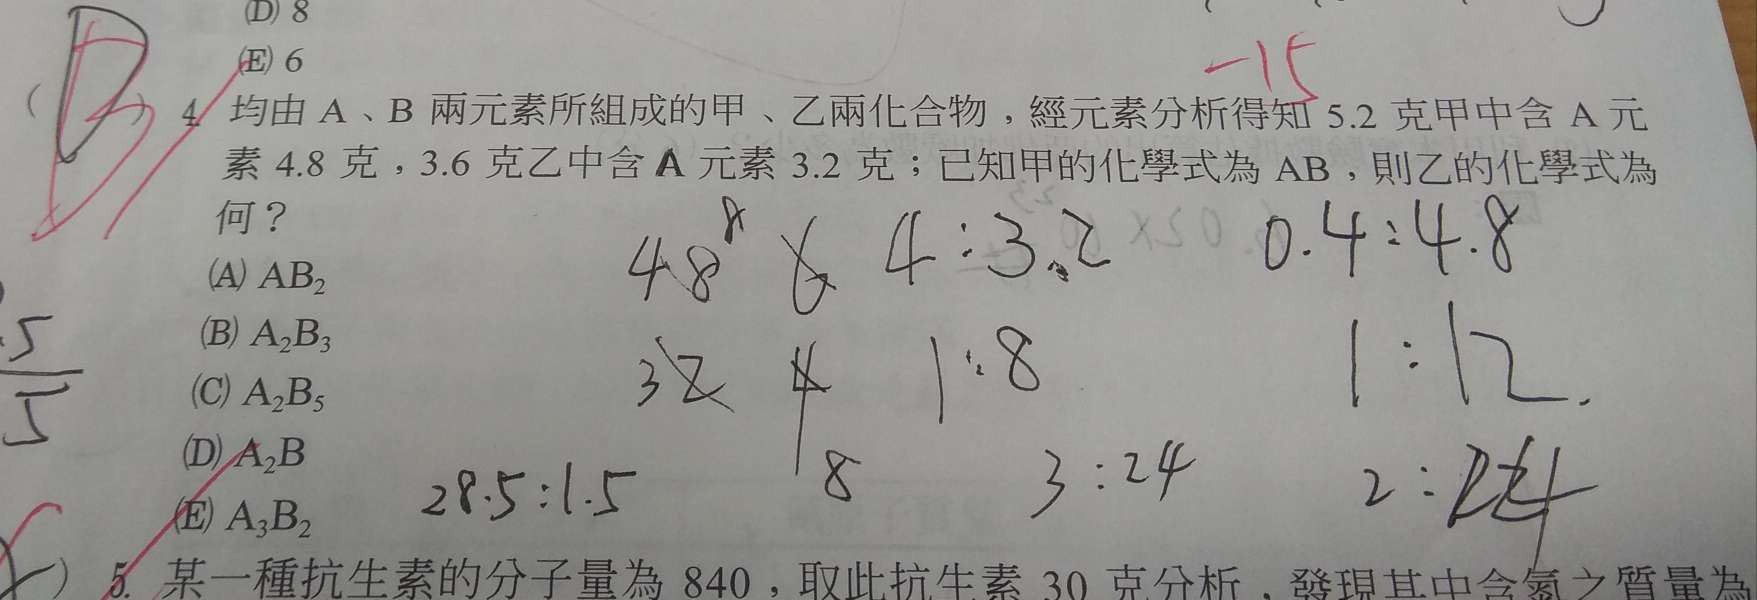 (D) 8
(E) 6
-15
4. 均由 A、B 兩元素所組成的甲、乙兩化合物，經元素分析得知 5.2 克甲中含 A 元
素 4.8 克，3.6 克乙中含 A 元素 3.2 克；已知甲的化學式為 AB，則乙的化學式為
何？
48 8 6 4:3.2 0.4:4.8
(A) AB₂
(B) A₂B₃
32 4 1:8 1:12.
(C) A₂B₅
(D) A₂B
28.5:1.5 8 3:24 2:24
(E) A₃B₂
5
5
5. 某一種抗生素的分子量為 840，取此抗生素 30 克分析，發現其中含氮之質量為